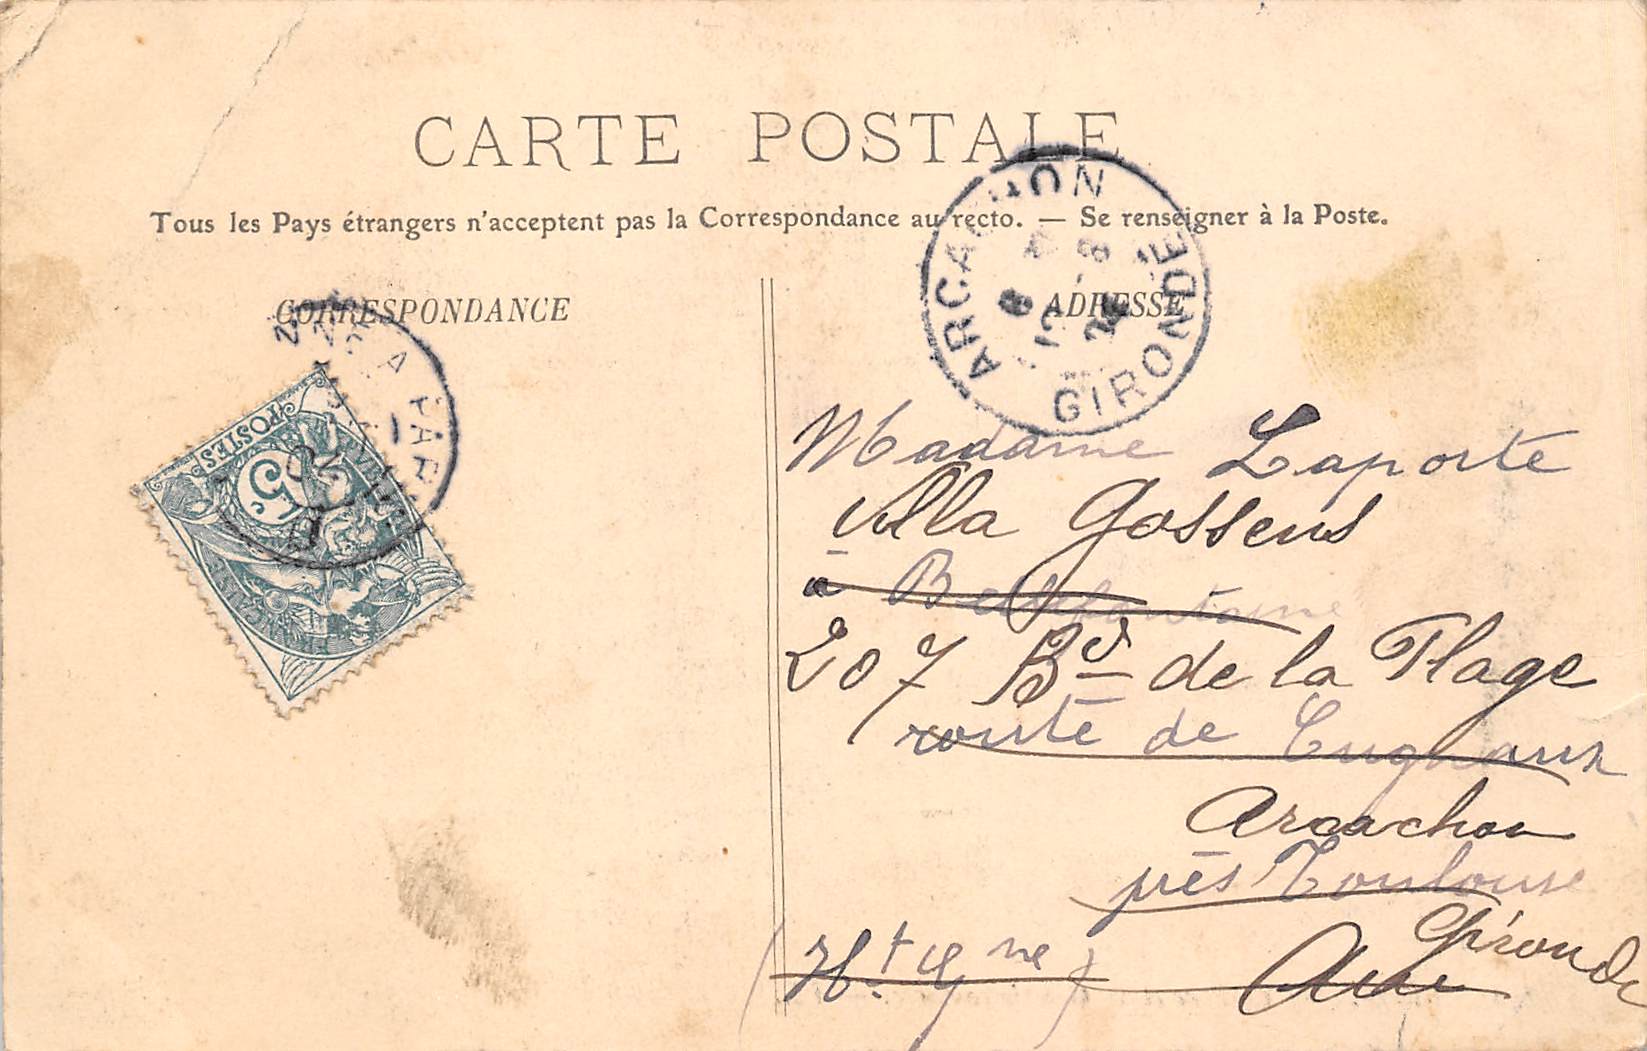 CARTE POSTALE
Tous les Pays étrangers n'acceptent pas la Correspondance au recto. — Se renseigner à la Poste.
CORRESPONDANCE
ADRESSE
ARCACHON
GIRONDE
POSTES
5c.
Madame Laporte
Villa Gossens
à Bellefontaine
207 Bd de la Plage
route de Cugnaux
Arcachon
près Toulouse
Gironde
(Hte Gne)